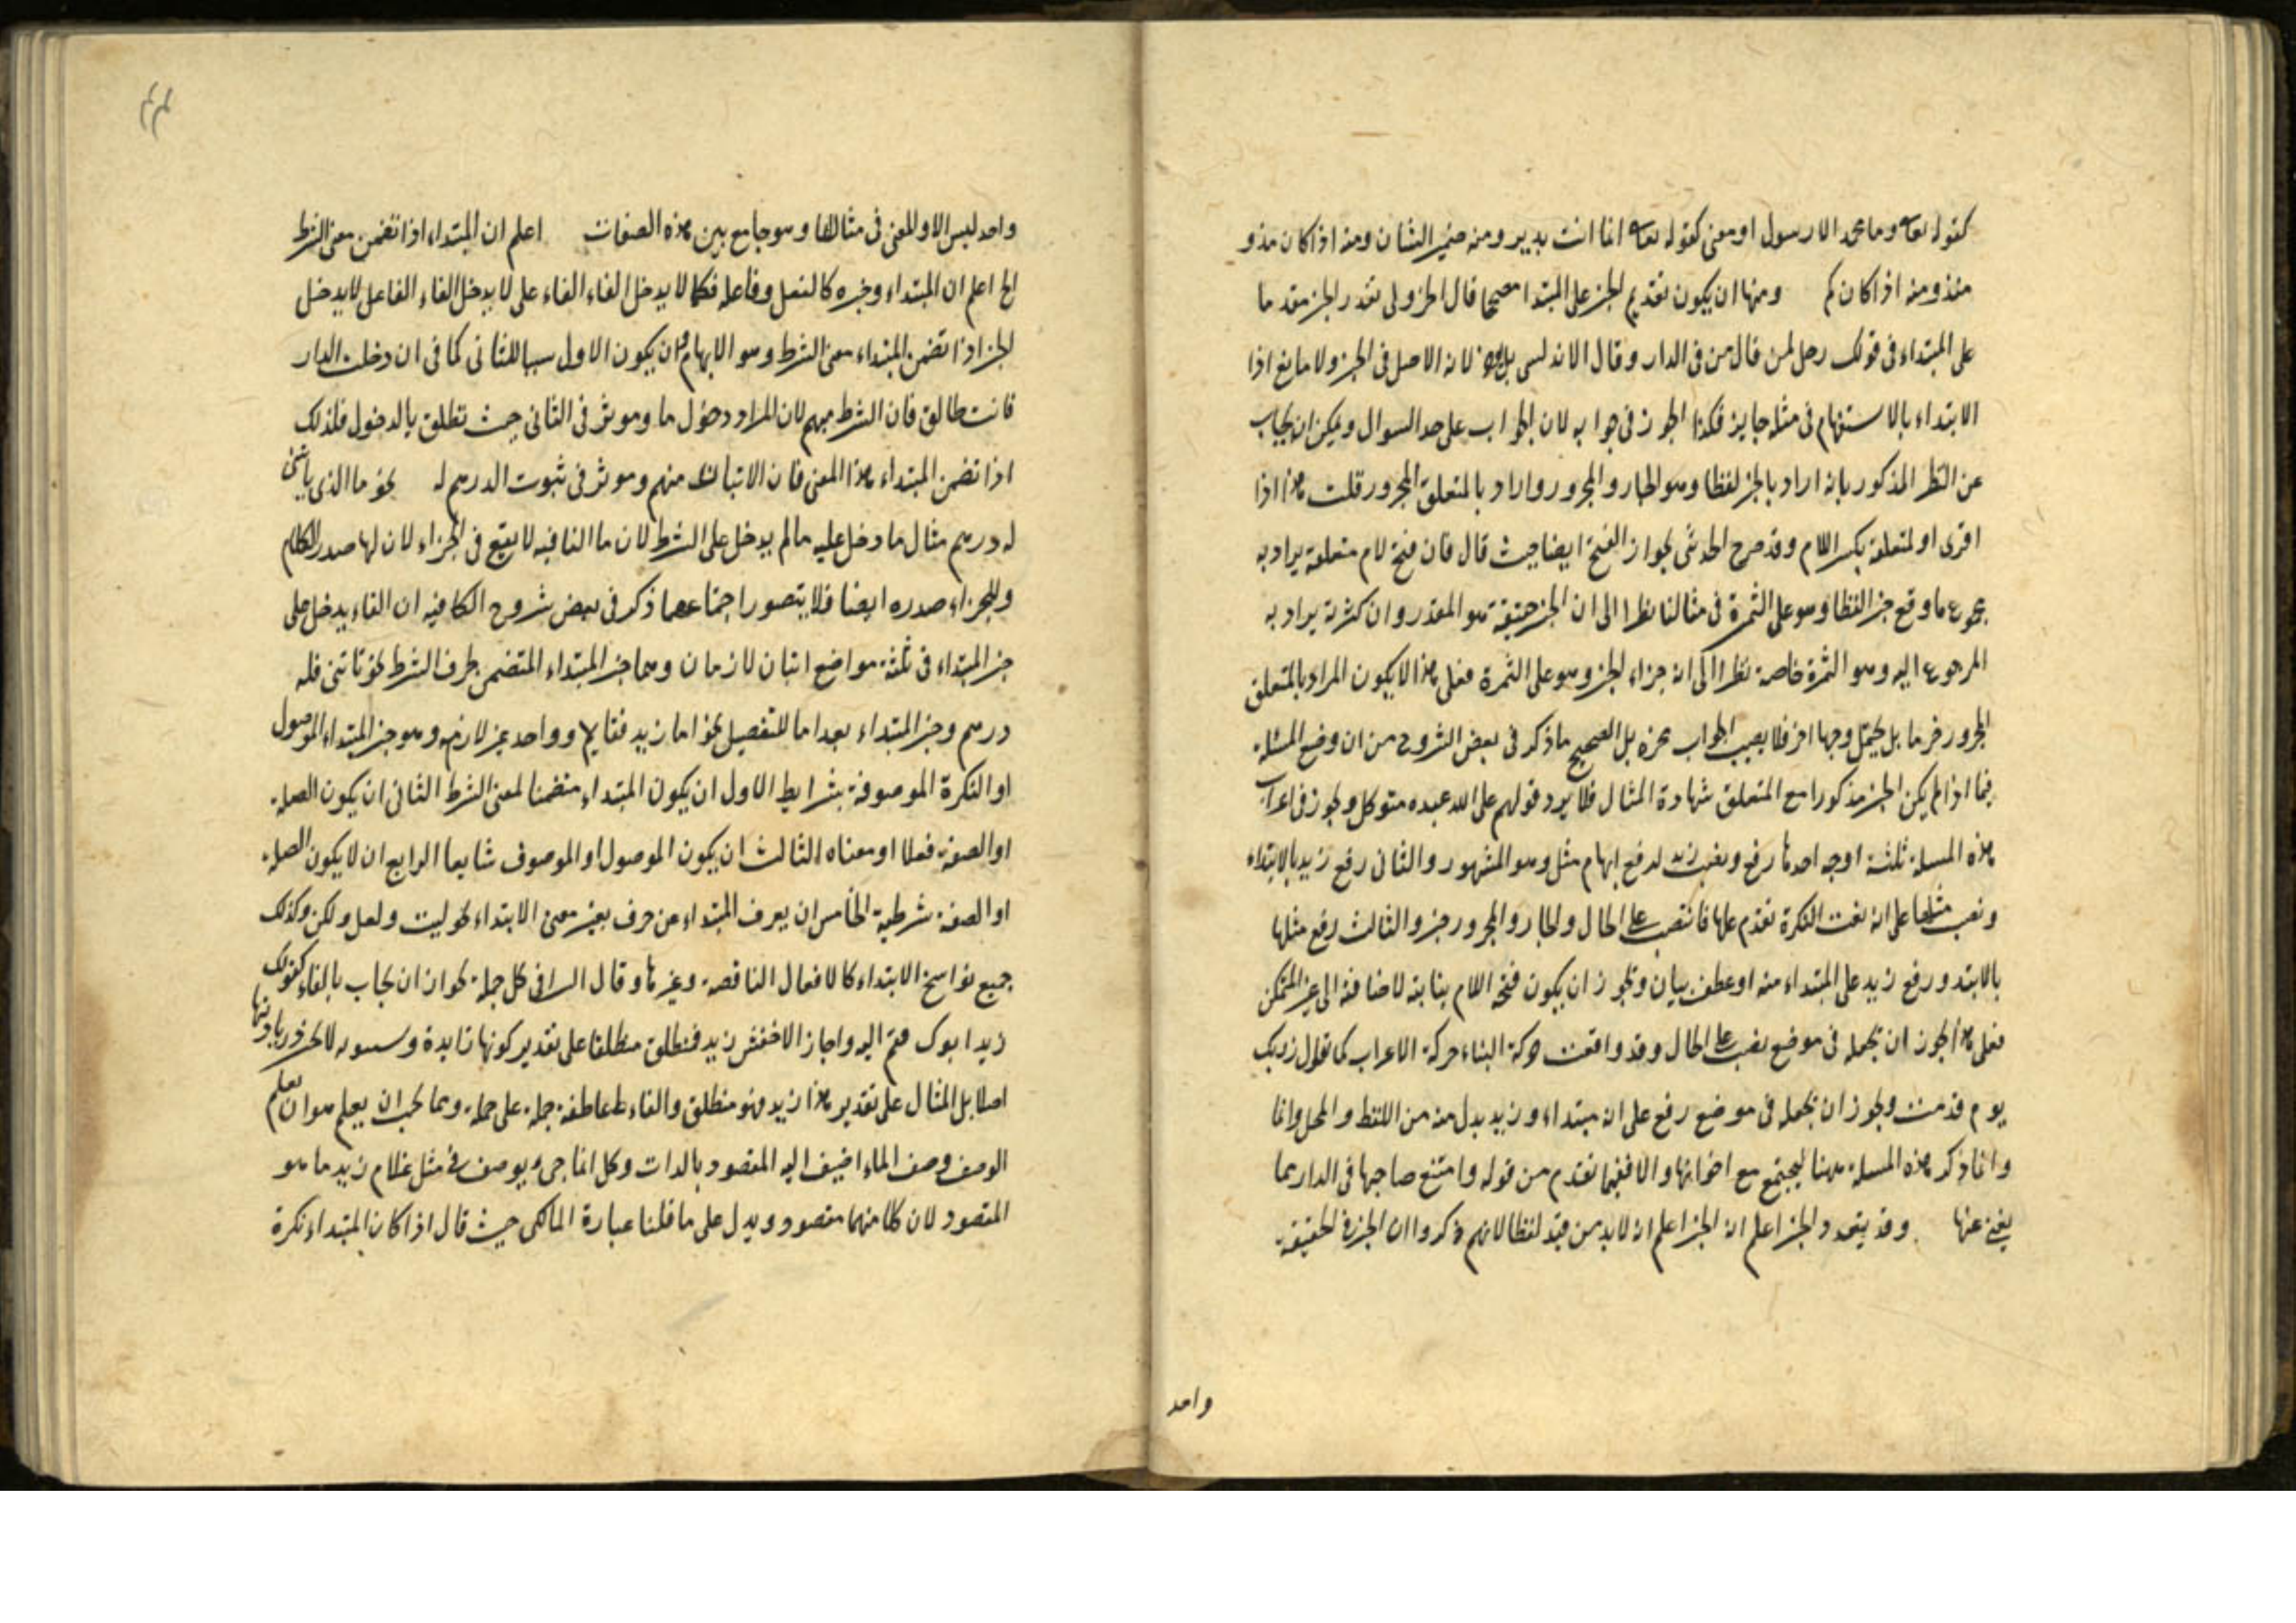 كقوله تعالى وما محمد الا رسول او معنى كقوله تعالى انما انت نذير ومنه ضمير الشان ومنه اذا كان مذ و
منذ ومنه اذا كان كم ومنها ان يكون تقديم الخبر على المبتدا مصححا قال الجزولي تقدر الخبر مقدما
على المبتداء في قولك رجل لمن قال من في الدار وقال الاندلسي بل لان الاصل في الخبر ولا مانع اذا
الابتداء بالاستفهام في مثله جايز فكذا الجواز في جوابه لان الجواب على حد السوال ويمكن ان يجاب
عن النظر المذكور بانه اراد بالخبر لفظا وهو الجار والمجرور واراد بالمتعلق المجرور قلت هذا اذا
اقرى او لمتعلقه بكسر اللام وقد صرح الحدثى بجواز الفتح ايضا حيث قال فان فتح لام متعلقه يراد به
مجموع ما وقع خبرا لفظا وهو على التمرة في مثالنا نظرا الى ان الخبر حقيقة هو المقدر وان كسرته يراد به
المرجوع اليه وهو التمرة خاصة نظرا الى انه جزاء الخبر وهو على التمرة فعلى هذا لا يكون المراد بالمتعلق
المجرور بل يحتمل وجها اخر فلا يصيب الجواب بل الصحيح ما ذكر في بعض الشروح من ان وضع المسئلة
فيما اذا لم يكن الخبر مذكورا مع المتعلق شهادة المثال فلا يرد قولهم على الله عبده متوكل ويجوز في اعراب
هذه المسلة ثلثة اوجه احدها رفع ونصب زبد لرفع ابهام مثل وهو المشهور والثاني رفع زبد بالابتداء
ونصب مثلها على انه نعت النكرة تقدم عليها فانتصب على الحال والجار والمجرور خبر والثالث رفع مثلها
بالابتد ورفع زبد على المبتداء منه او عطف بيان ويجوز ان يكون فتحة اللام بنائية لاضافته الى غير المتمكن
فعلى هذا يجوز ان تجعله في موضع نصب على الحال وقد وافقت حركة البناء حركة الاعراب كما تقول زيد بك
يوم قدمت ويجوز ان تجعله في موضع رفع على انه مبتداء وزبد بدل منه من اللفظ والمحل وانما
وانما ذكر هذه المسلة ههنا ليجتمع مع اخواتها والا ففيما تقدم من قوله وامتنع صاحبها في الدار مما
يغني عنها وقد يتعدد الخبر اعلم ان الخبر اعلم انه لا بد من قيد لفظا لانهم ذكروا ان الخبر في الحقيقة
واحد
واحد ليس الا والمعنى في مثالها وهو جامع بين هذه الصفات اعلم ان المبتداء اذا تضمن معنى الشرط
الخ اعلم ان المبتداء وخبره كالفعل وفاعله فكما لا يدخل الفاء الفاء على لا يدخل الفاء الفاعل لا يدخل
الخبر اذا تضمن المبتداء معنى الشرط وهو الابهام وان يكون الاول سببا للثاني كما في ان دخلت الدار
فانت طالق فان الشرط مبهم لان المراد دخول ما وموثر في الثاني حيث تطلق بالدخول فلذلك
اذا تضمن المبتداء هذا المعنى فان الاتيان مبهم وموثر في ثبوت الدرهم له نحو ما الذي ياتيني
له درهم مثال ما دخل عليه ما لم يدخل على الشرط لان ما النافيه لا يقع في الجزاء لان لها صدر الكلام
وللجزاء صدره ايضا فلا يتصور اجتماعهما ذكر في بعض شروح الكافيه ان الفاء يدخل على
خبر المبتداء في ثلثة مواضع اثنان لازمان وهما خبر المبتداء المتضمن حرف الشرط نحو تاتيني فله
درهم وخبر المبتداء بعد اما للتفصيل نحو اما زيد فقايم وواحد غير لازم وهو خبر المبتداء الموصول
او النكرة الموصوفة بشرايط الاول ان يكون المبتداء متضمنا لمعنى الشرط الثاني ان يكون الصلة
او الصفة فعلا او معناه الثالث ان يكون الموصول او الموصوف شايعا الرابع ان لا يكون الصلة
او الصفة شرطية الخامس ان يعرف المبتداء من حرف يغير معنى الابتداء نحو ليت ولعل ولكن وكذلك
جميع نواسخ الابتداء كالافعال الناقصة وغيرها وقال السيرافي كل جملة يجوز ان يجاب بالفاء كقولك
زيد ابوك فقم اليه واجاز الاخفش زيد فمنطلق مطلقا على تقدير كونها زايدة وسيبويه لا يجوز زيادتها
اصلا بل المثال على تقدير هذا زيد فهو منطلق والفاء عاطفة جملة على جملة ومما يجب ان يعلم هو ان
الوصف وصف الماء اضيف اليه المقصود بالذات وكل انما جيء يوصف في مثل غلام زيد ما هو
المقصود لان كلا منهما مقصود ويدل على ما قلنا عبارة المالكي حيث قال اذا كان المبتداء نكرة